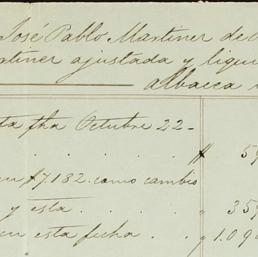 José Pablo Martinez de
rtinez ajustada y liqui
albacea
ta fha Octubre 22-
. . . . . . . # 59
en $7.182. como cambio
y esta. . . . . . " 359
en esta fecha . . . " 1.090